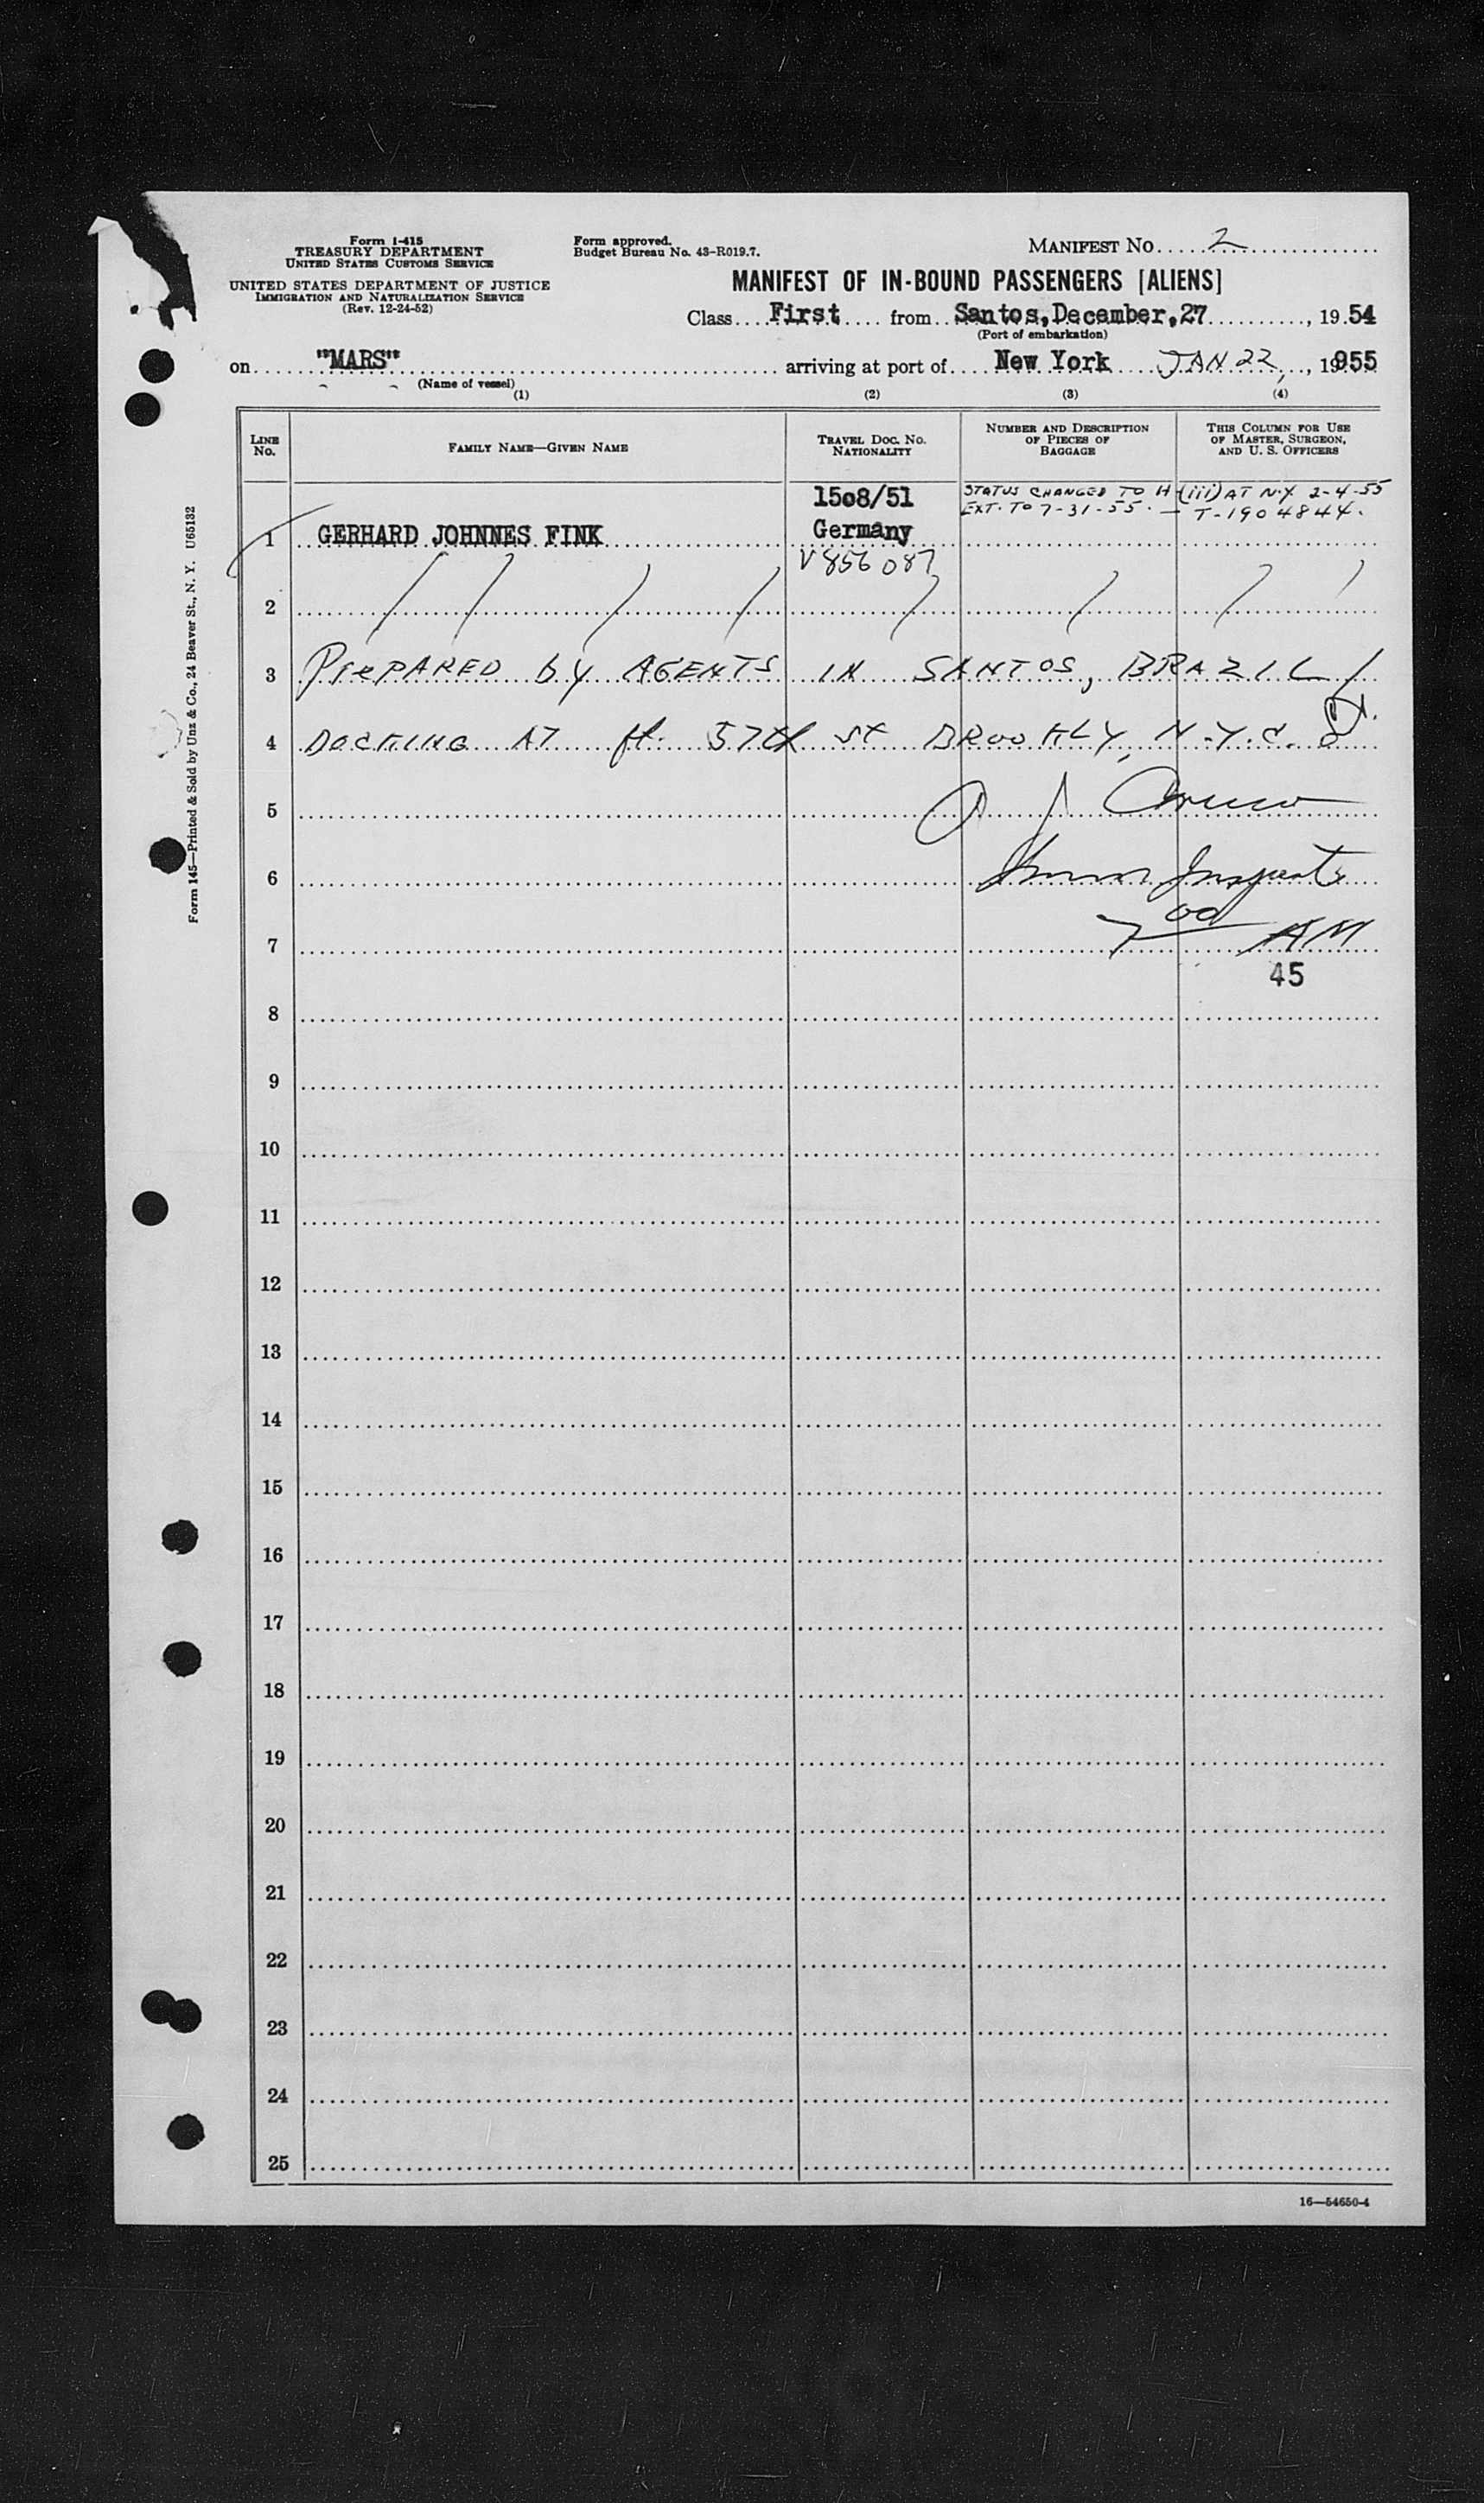 Form I-415
TREASURY DEPARTMENT
UNITED STATES CUSTOMS SERVICE
UNITED STATES DEPARTMENT OF JUSTICE
IMMIGRATION AND NATURALIZATION SERVICE
(Rev. 12-24-52)
Form approved.
Budget Bureau No. 43-R019.7.
MANIFEST NO. 2
MANIFEST OF IN-BOUND PASSENGERS [ALIENS]
Class First from Santos, December, 27, 19 54
(Port of embarkation)
on "MARS" arriving at port of New York JAN 22, , 19 955
(Name of vessel)
(1) (2) (3) (4)
LINE NO.
FAMILY NAME—GIVEN NAME
TRAVEL DOC. NO. NATIONALITY
NUMBER AND DESCRIPTION OF PIECES OF BAGGAGE
THIS COLUMN FOR USE OF MASTER, SURGEON, AND U. S. OFFICERS
1508/51
STATUS CHANGED TO H (iii) AT N.Y 2-4-55
EXT. TO 7-31-55. — T-1904844.
1 GERHARD JOHNNES FINK Germany
V856087
2
3 PREPARED by AGENTS IN SANTOS, BRAZIL
4 DOCKING AT ft. 57th St BROOKLY, N.Y.C.
5
6
7 7 00 AM
45
8
9
10
11
12
13
14
15
16
17
18
19
20
21
22
23
24
25
16—54650-4
Form 145—Printed & Sold by Unz & Co., 24 Beaver St., N. Y. U65132